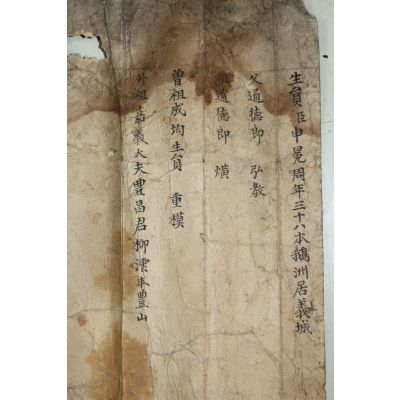 生員臣申冕周年三十八本鵝洲居義城
父通德郎 弘教
祖通德郎 熿
曾祖成均生員 重模
外祖嘉義大夫豊昌君柳澐本豊山